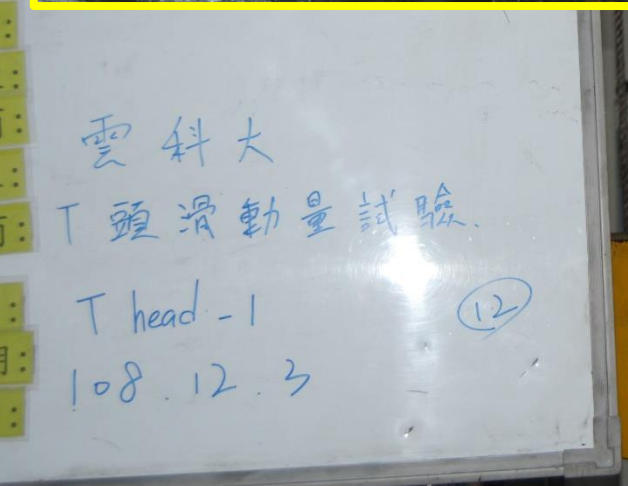 雲科大
T頭滑動量試驗.
T head-1
12
108.12.3